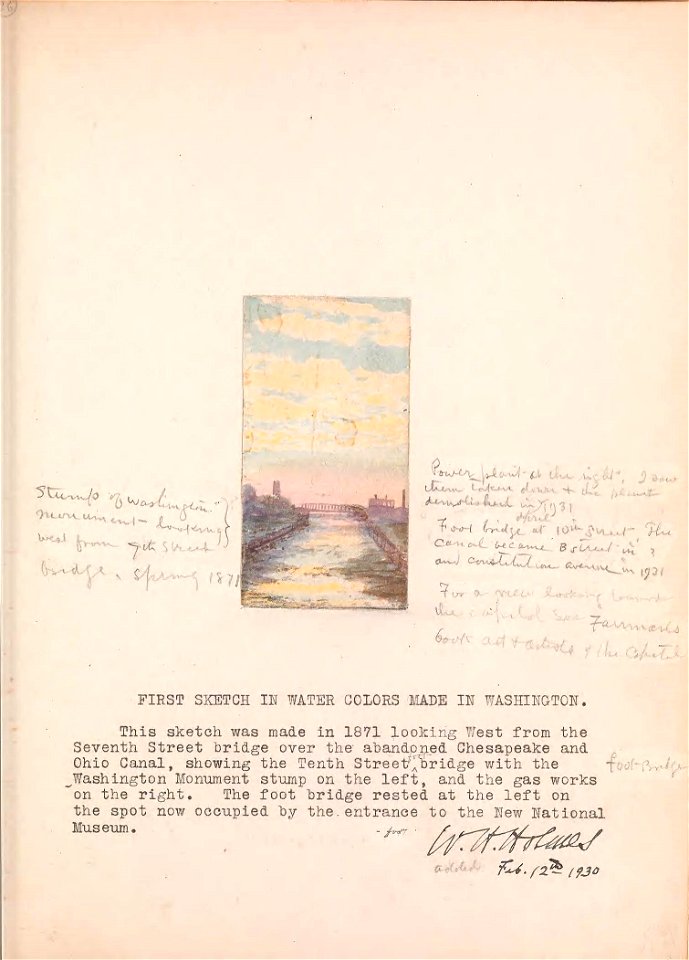 26
Stump of Washington
monument looking
west from 7th Street
bridge. Spring 1871
Power plant at the right. I saw
them taken down & the plant
demolished in 1931
April
Foot bridge at 10th Street The
canal became B street in ?
and constitution avenue in 1931
For a view looking towards
the capitol see Fairman's
book art & artists of the Capitol
FIRST SKETCH IN WATER COLORS MADE IN WASHINGTON.
This sketch was made in 1871 looking West from the
Seventh Street bridge over the abandoned Chesapeake and
Ohio Canal, showing the Tenth Street foot bridge with the
Washington Monument stump on the left, and the gas works
on the right. The foot bridge rested at the left on
the spot now occupied by the entrance to the New National
Museum.
foot Bridge
W. H. Holmes
added Feb. 12th 1930